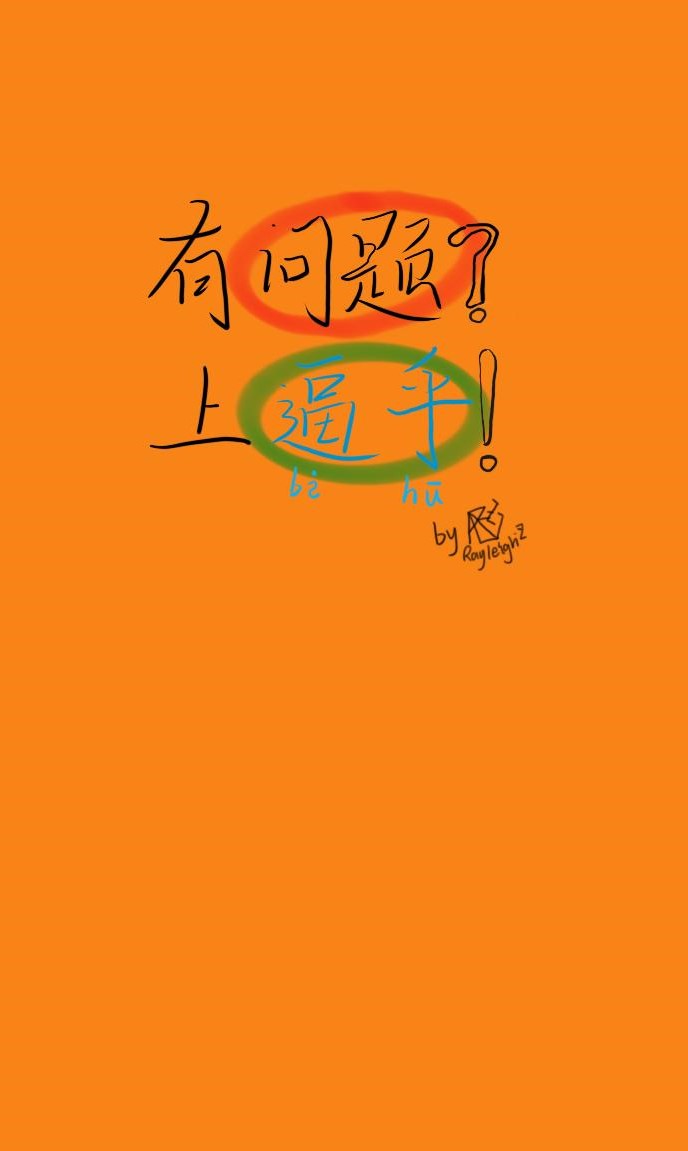 有问题?
上逼乎!
bī hū
by
Rayleighz